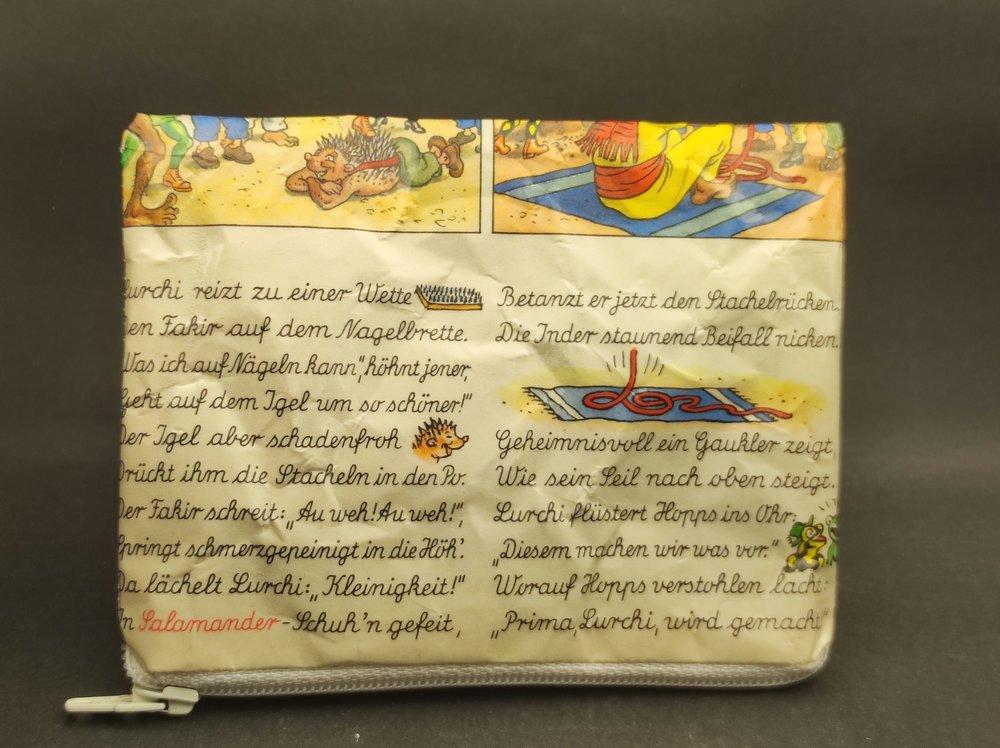 Lurchi reizt zu einer Wette
Den Fakir auf dem Nagelbrette.
„Was ich auf Nägeln kann", höhnt jener,
Geht auf dem Igel um so schöner!"
Der Igel aber schadenfroh
Drückt ihm die Stacheln in den Po.
Der Fakir schreit: „Au weh! Au weh!",
Springt schmerzgepeinigt in die Höh'.
Da lächelt Lurchi: „Kleinigkeit!"
In Salamander-Schuh'n gefeit,
Betanzt er jetzt den Stachelrücken.
Die Inder staunend Beifall nicken.
Geheimnisvoll ein Gaukler zeigt,
Wie sein Seil nach oben steigt.
Lurchi flüstert Hopps ins Ohr:
„Diesem machen wir was vor."
Worauf Hopps verstohlen lacht:
„Prima, Lurchi, wird gemacht"